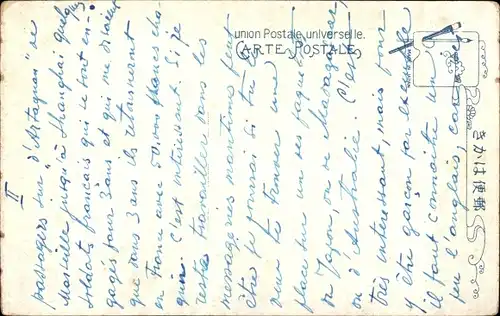 union Postale universelle.
CARTE POSTALE
きかは便郵
II
passagers sur "d'Artagnan" de
Marseille jusqu'à Shanghai quelq
soldats français qui se sont en-
gagés pour 3 ans et qui me disaient
que dans 3 ans ils retourneront
en France avec 50.000 francs cha-
qun. C'est intéressant. Si je
reste travailler dans les
messageries maritimes peut
être je pourrai si tu
veux te trouver une
place sur un des paquebots
du Japon, ou de Madagascar,
ou d'Australie. C'est
très intéressant, mais pour
y être garçon par exemple
il faut connaître un
peu l'anglais, car